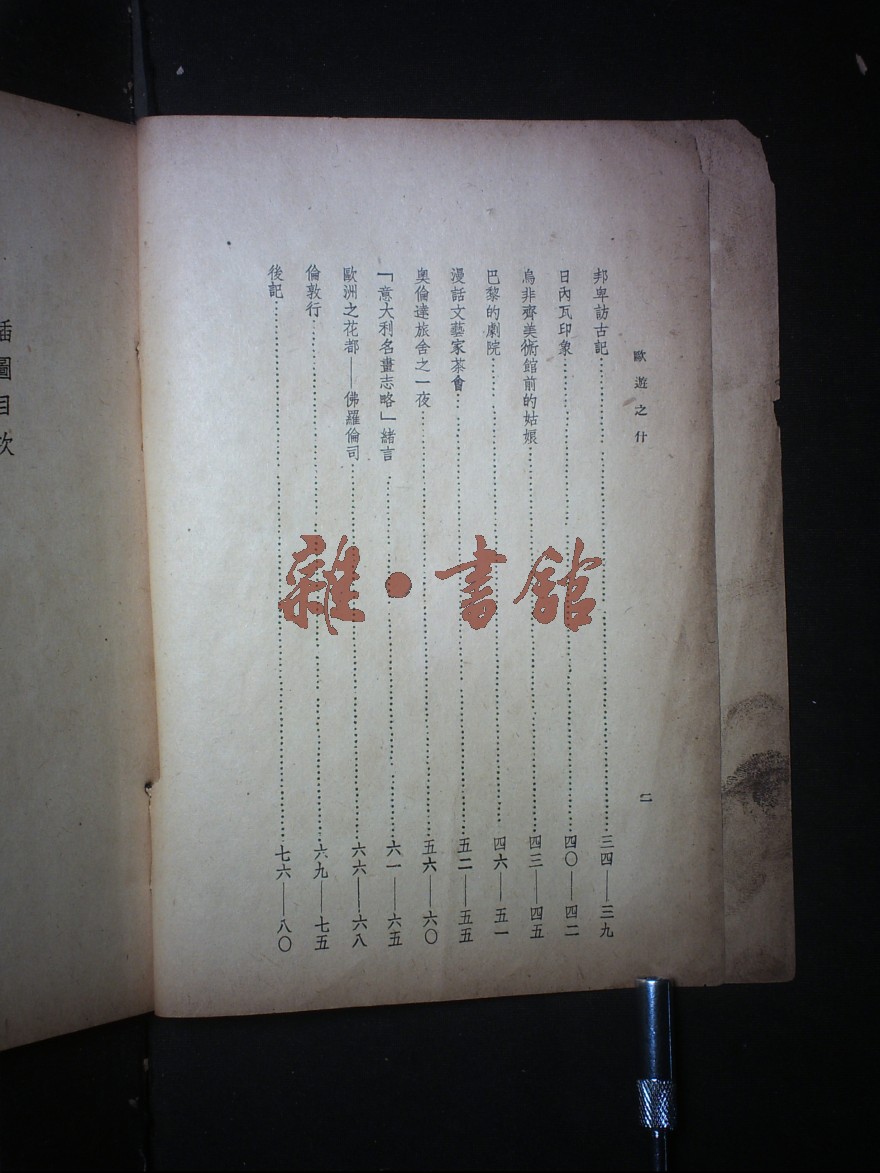 歐遊之什
二
邦卑訪古記……三四——三九
日內瓦印象……四〇——四二
烏非齊美術館前的姑娘……四三——四五
巴黎的劇院……四六——五一
漫話文藝家茶會……五二——五五
奧倫達旅舍之一夜……五六——六〇
「意大利名畫志略」緒言……六一——六五
歐洲之花都——佛羅倫司……六六——六八
倫敦行……六九——七五
後記……七六——八〇
插圖目次
雜·書館